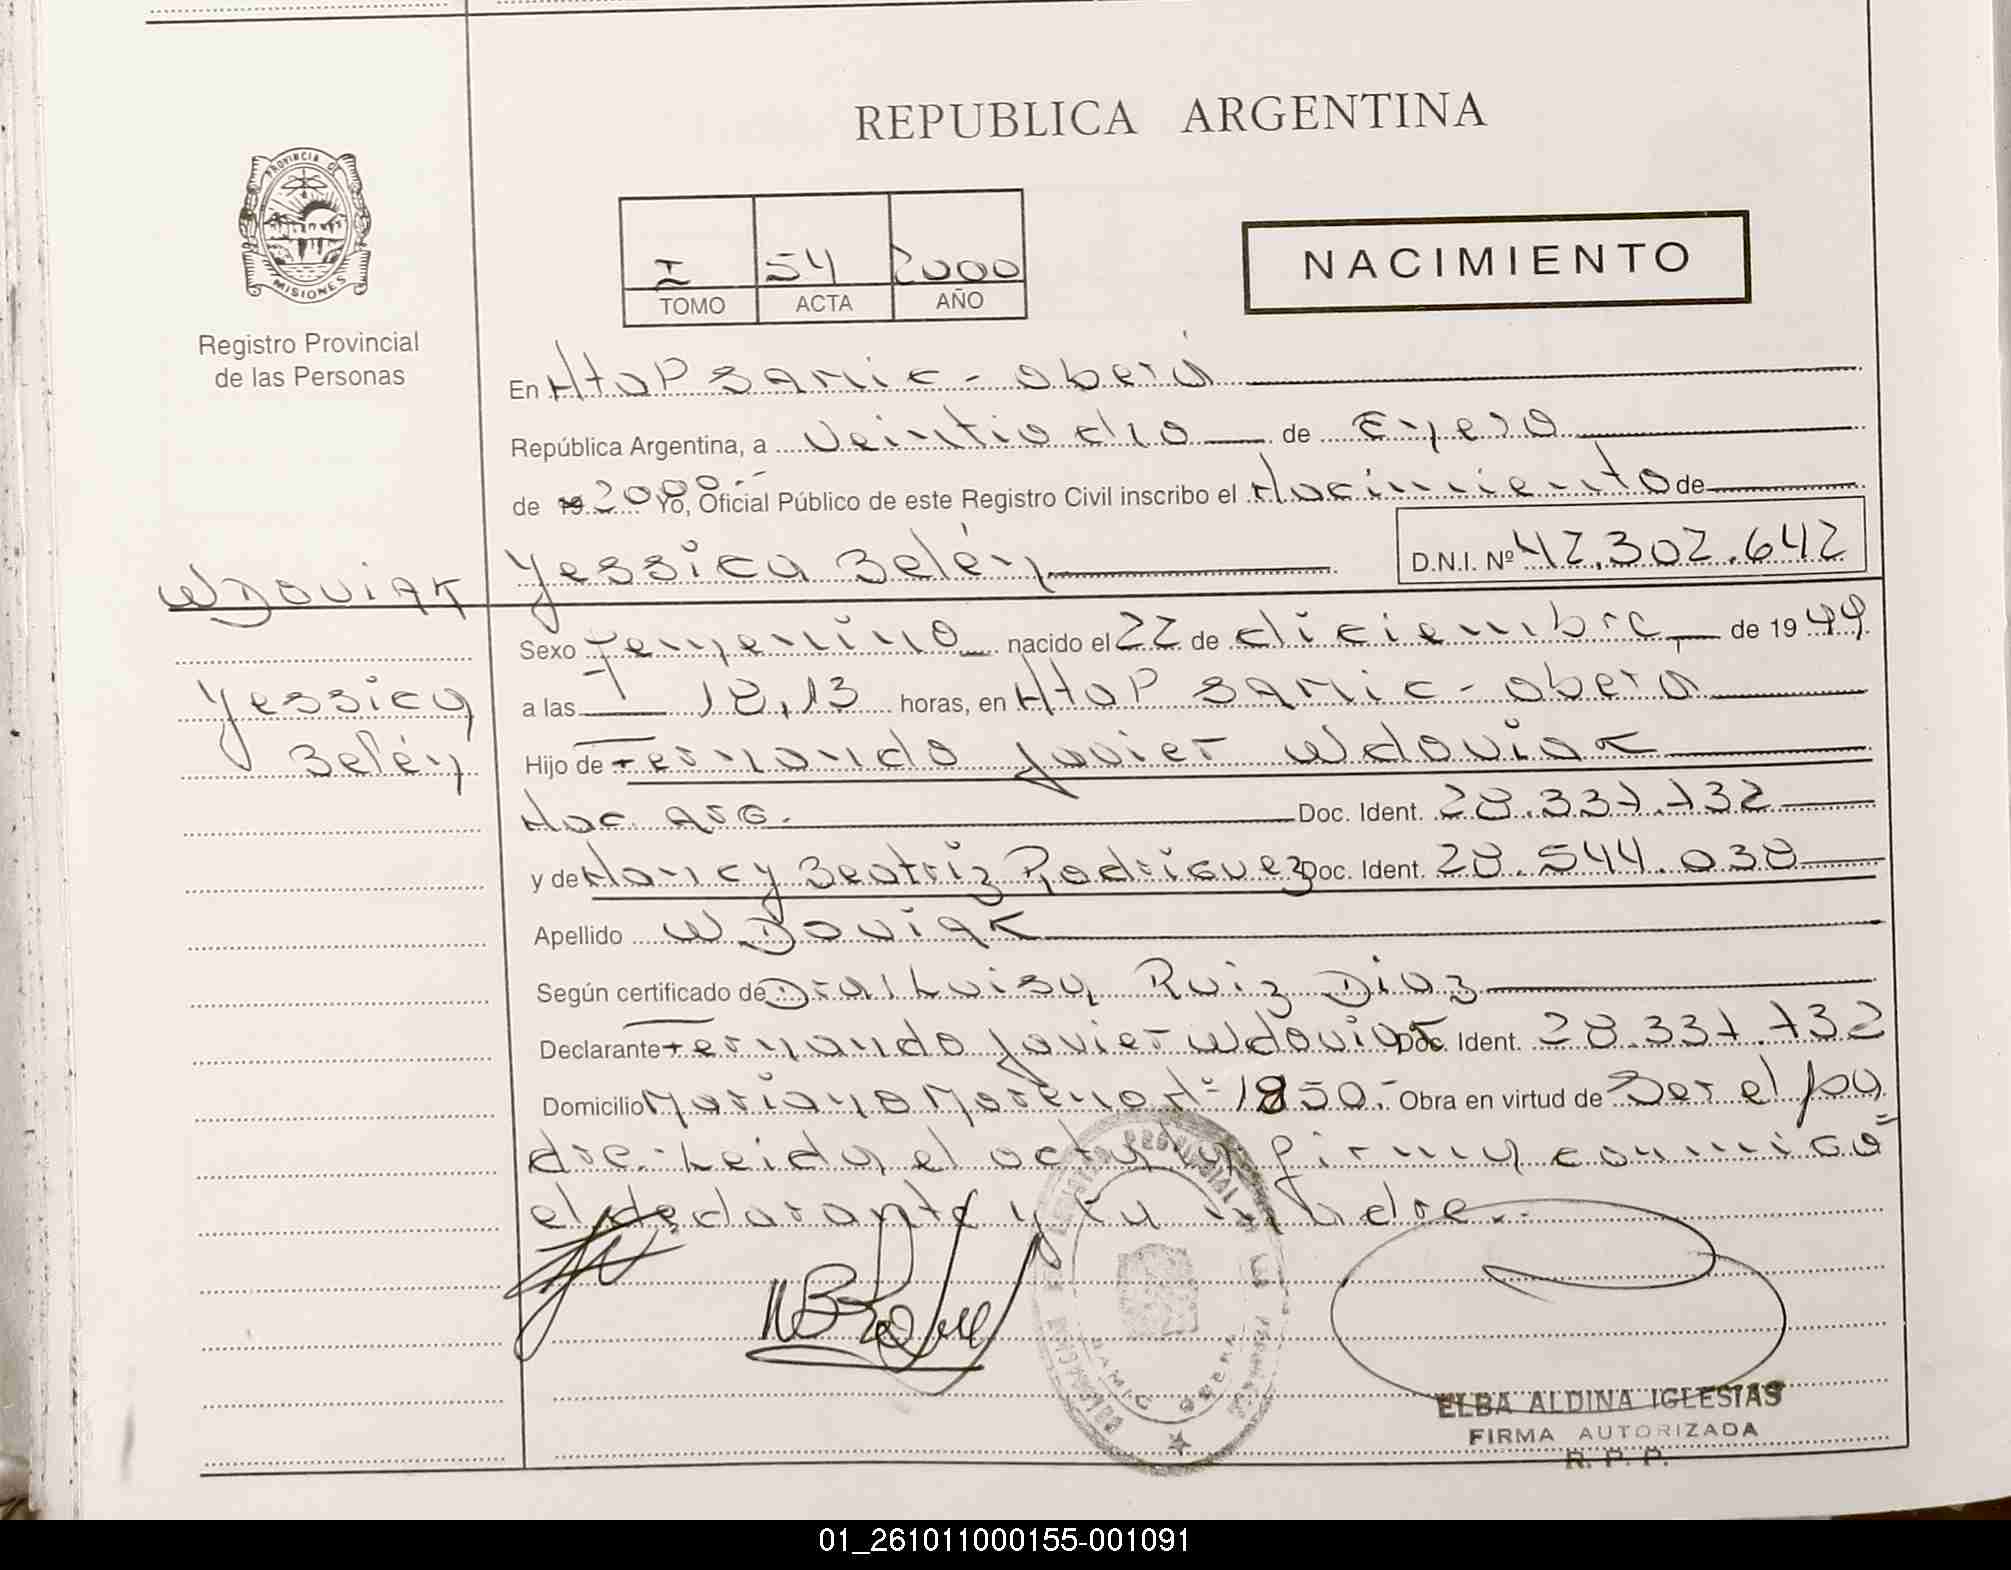 REPUBLICA ARGENTINA
PROVINCIA DE
MISIONES
Registro Provincial
de las Personas
I 54 2000
TOMO ACTA AÑO
NACIMIENTO
En Htal SAMIC - Oberá
República Argentina, a veintiocho de Enero
de 19 2000.- Yo, Oficial Público de este Registro Civil inscribo el Nacimiento de
WDOVIAK
Yessica Belén D.N.I. Nº 42.302.642
Yessica
Belén
Sexo Femenino nacido el 22 de diciembre de 19 99
a las 18,13 horas, en Htal SAMIC - Oberá
Hijo de Fernando Javier Wdoviak
Nac. Arg. Doc. Ident. 28.337.732
y de Nancy Beatriz Rodriguez Doc. Ident. 28.544.038
Apellido WDOVIAK
Según certificado de Dra. Luisa Ruiz Diaz
Declarante Fernando Javier Wdoviak Doc. Ident. 28.337.732
Domicilio Mariano Moreno Nº 1850.- Obra en virtud de Ser el pa
dre.- Leida el acta la firma conmigo
el declarante y la madre.-
SAMIC OBERA
ELBA ALDINA IGLESIAS
FIRMA AUTORIZADA
R. P. P.
01_261011000155-001091